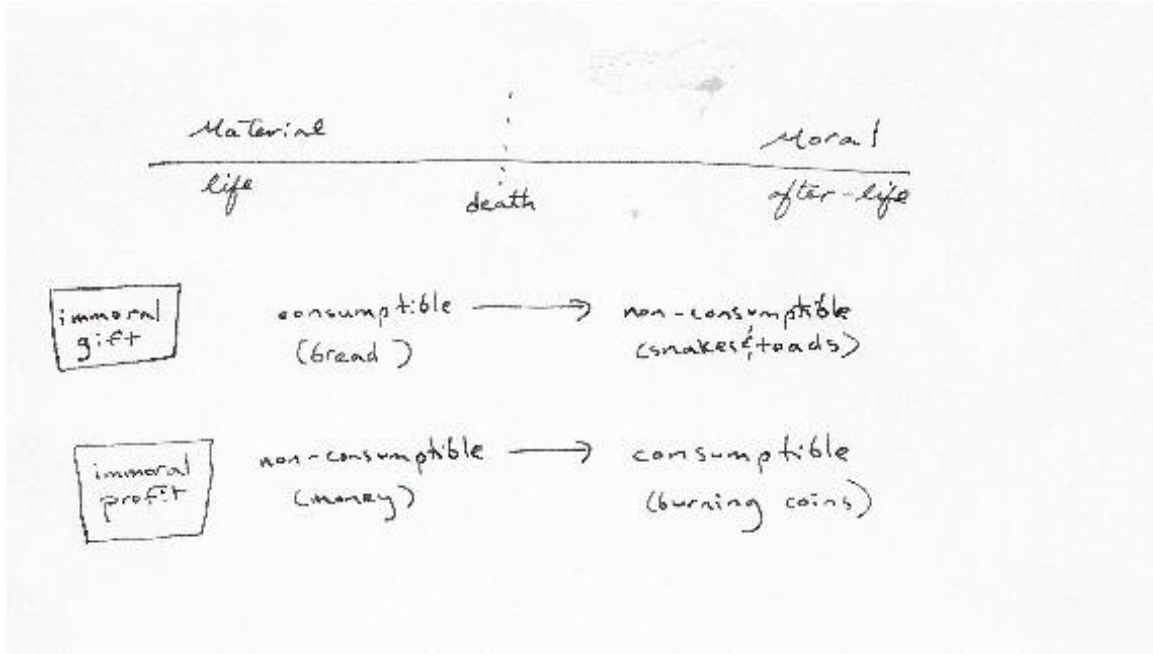 Material Moral
life death after-life
immoral gift consumptible → non-consumptible
(bread) (snakes & toads)
immoral profit non-consumptible → consumptible
(money) (burning coins)